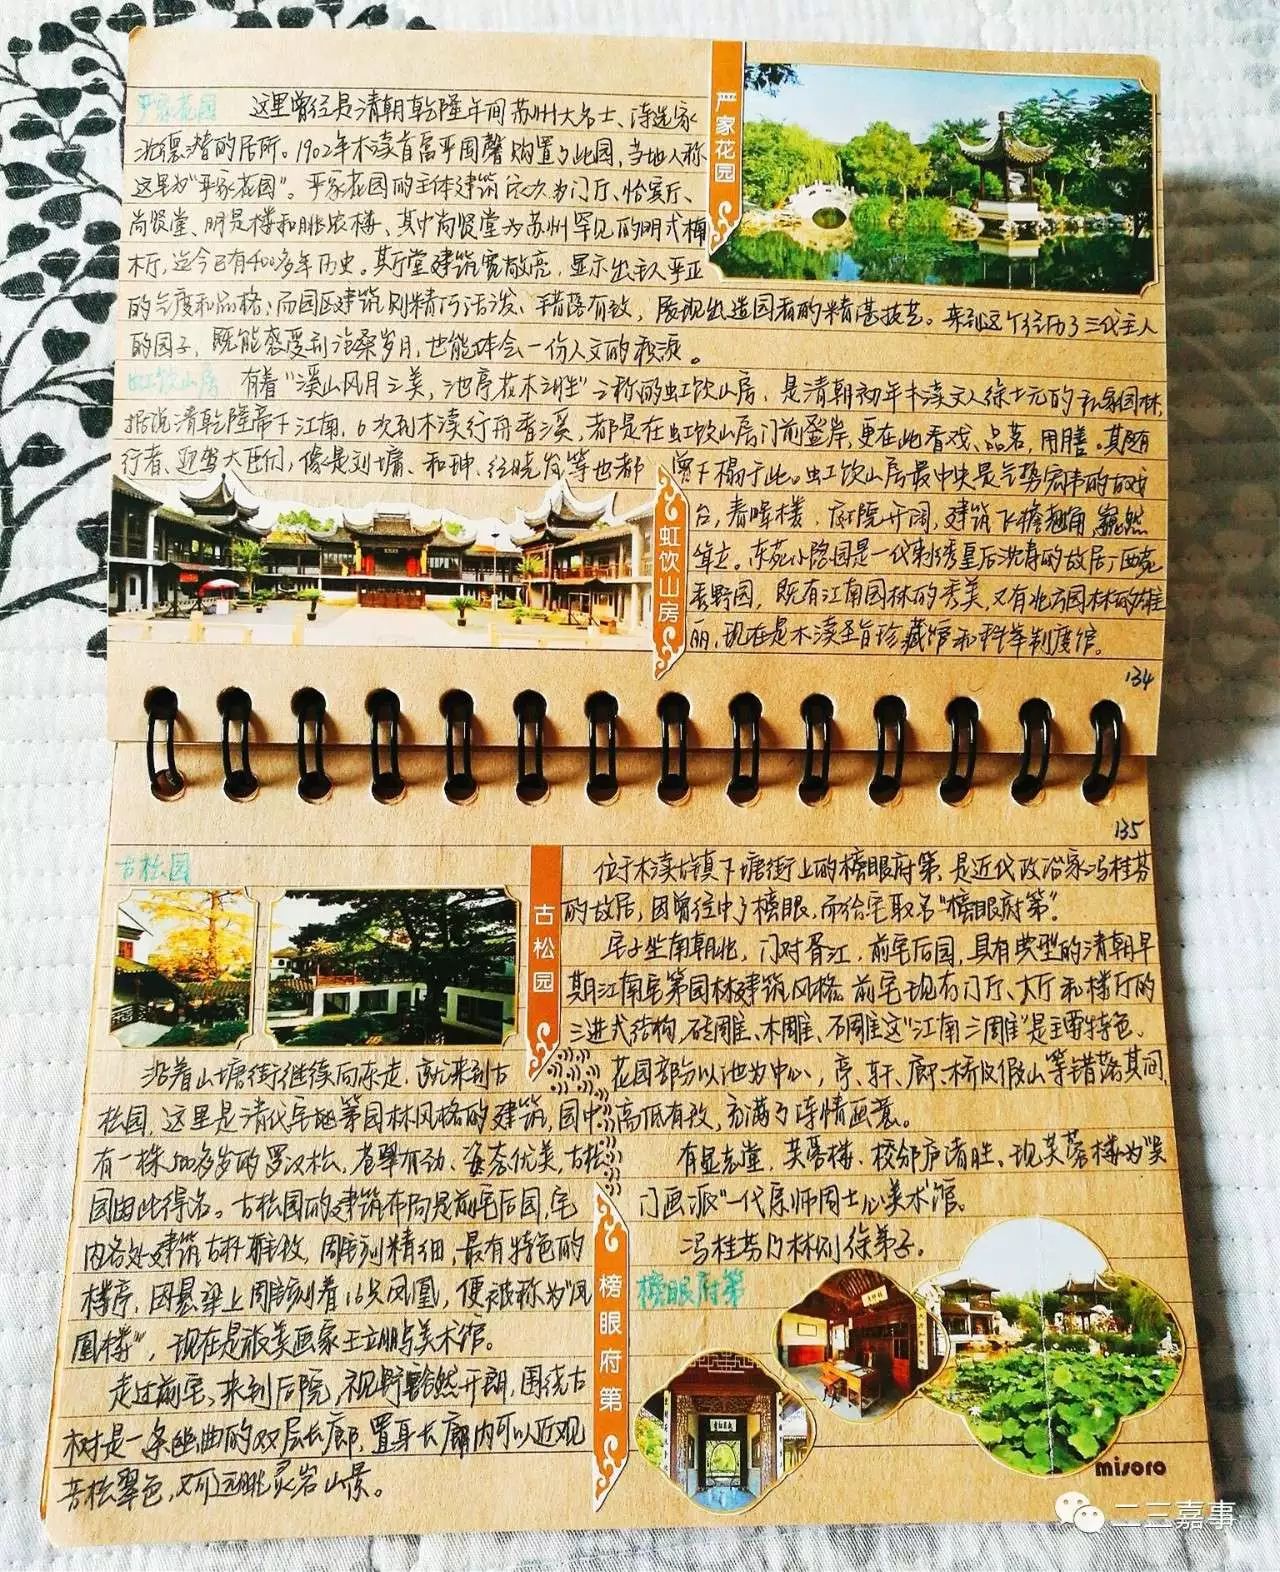 严家花园
这里曾经是清朝乾隆年间苏州大名士、诗选家
沈德潜的居所。1902年木渎首富严国馨购置了此园,当地人称
这里为“严家花园”。严家花园的主体建筑依次为门厅、怡宾厅、
尚贤堂、明是楼和眺农楼、其中尚贤堂为苏州罕见的明式楠
木厅,迄今已有400多年历史。其厅堂建筑宽敞亮,显示出主人平正
的气度和品格;而园区建筑则精巧活泼、错落有致,展现出造园者的精湛技艺。来到这个经历了三代主人
的园子,既能感受到沧桑岁月,也能体会一份人文的积淀。
严家花园
虹饮山房
有着“溪山风月之美,池亭花木之胜”之称的虹饮山房,是清朝初年木渎文人徐士元的私家园林,
据说清乾隆帝下江南,6次到木渎行舟香溪,都是在虹饮山房门前登岸,更在此看戏、品茗,用膳。其随
行者、迎驾大臣们,像是刘墉、和珅、
等也都
下榻于此。虹饮山房最中央是气势宏伟的古戏
台,春晖楼,庭院开阔,建筑飞檐翘角,巍然
耸立。东苑小隐园是一代刺绣皇后沈寿的故居;西苑
秀野园,既有江南园林的秀美,又有北方园林的雄
丽,现在是木渎圣旨珍藏馆和科举制度馆。
虹饮山房
134
135
古松园
古松园
沿着山塘街继续向东走,就来到古
松园,这里是清代宅地第园林风格的建筑,园中
有一株500多岁的罗汉松,苍翠有劲、姿态优美,古松
园由此得名。古松园的建筑布局是前宅后园,宅
内各处建筑古朴雅致,雕刻精细,最有特色的
楼厅,因悬梁上雕刻着16只凤凰,便被称为“凤
凰楼”,现在是旅美画家王立朋美术馆。
走过前宅,来到后院,视野豁然开朗,围绕古
树是一条幽曲的双层长廊,置身长廊内可以近观
苍松翠色,又可远眺灵岩山景。
位于木渎古镇下塘街上的榜眼府第,是近代政治家冯桂芬
的故居,因曾经中了榜眼,而给宅取名“榜眼府第”。
宅子坐南朝北,门对胥江,前宅后园,具有典型的清朝早
期江南宅第园林建筑风格。前宅现有门厅、大厅和楼厅的
三进式结构,砖雕、木雕、石雕这“江南三雕”是主要特色。
花园部分以池为中心,亭、轩、廊、桥及假山等错落其间,
高低有致,充满了诗情画意。
有显志堂,芙蓉楼、校邠庐诸胜、现芙蓉楼为“吴
门画派”一代宗师周士心美术馆。
冯桂芬乃林则徐弟子。
榜眼府第
榜眼府第
misoro
二三嘉事